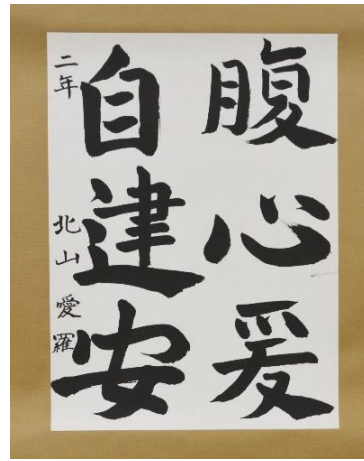 腹心爰
自建安
二年 北山愛羅